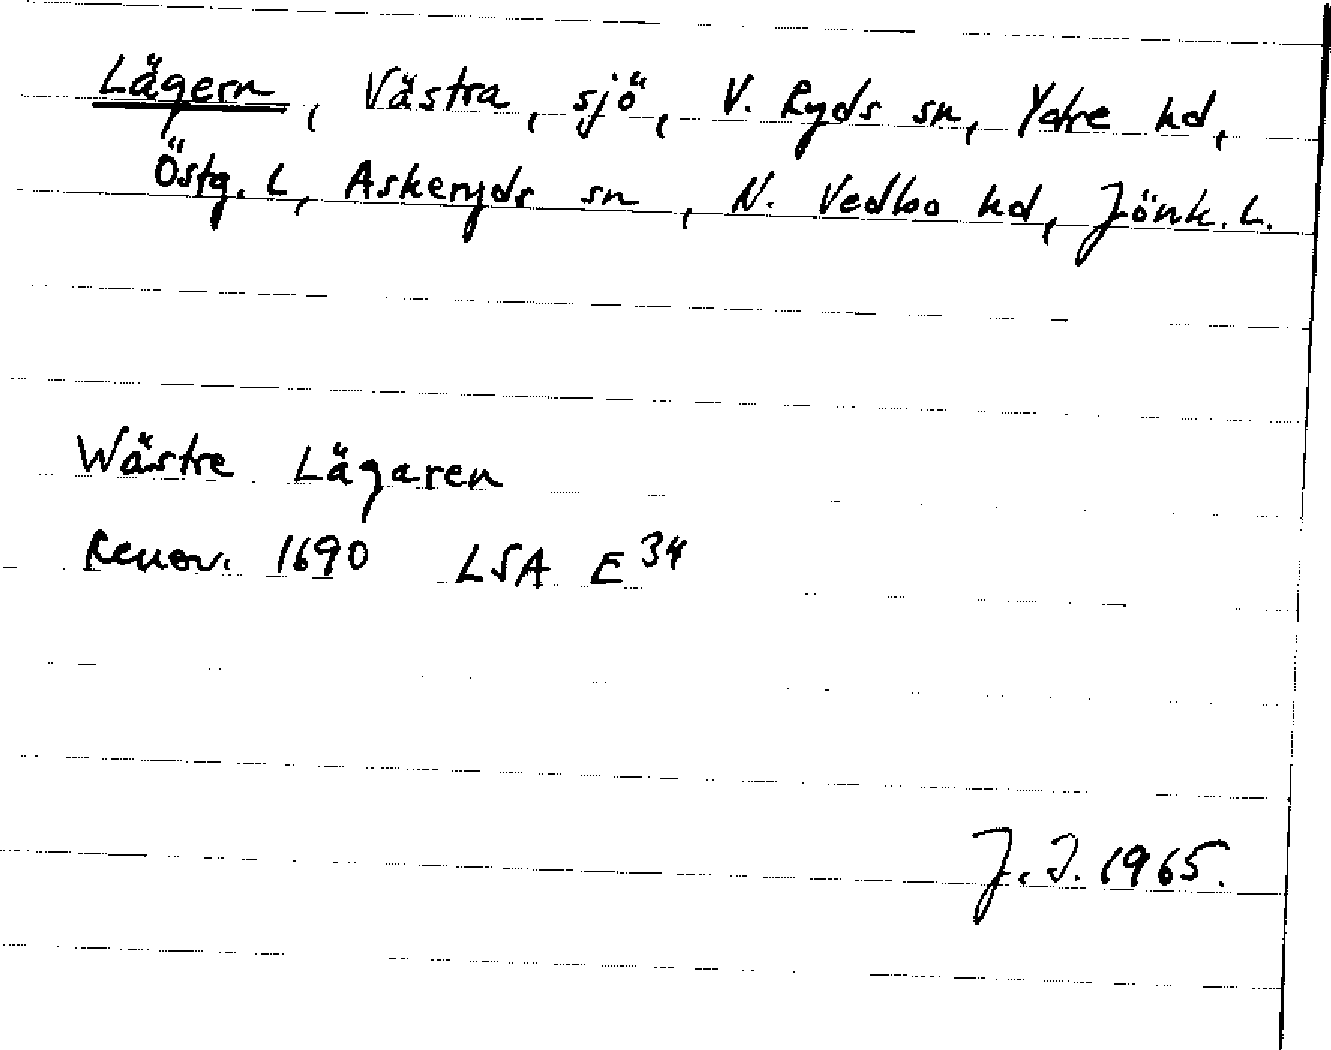 Lägern, Västra, sjö, V. Ryds sn, Ydre hd,
Östg. L, Askeryds sn, N. Vedbo hd, Jönk. L.
Wästre Lägaren
Renov. 1690 LSA E 34
J. I. 1965.